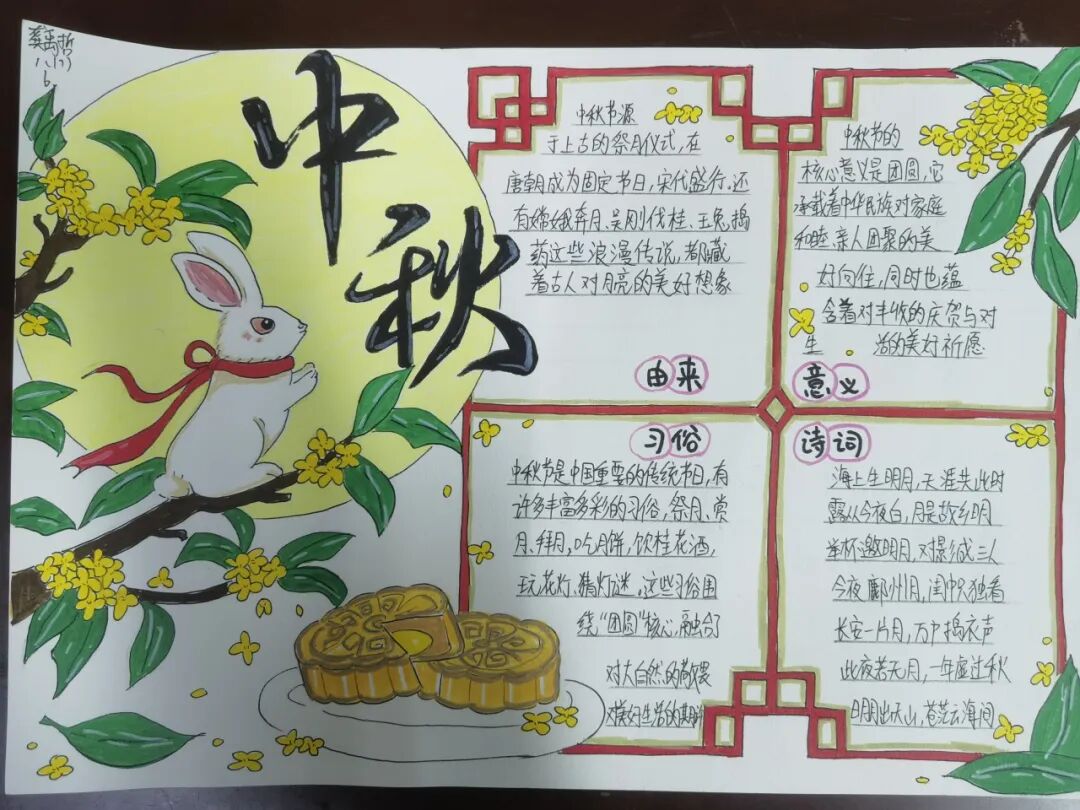 龚禹哲
八(7)
6
中秋
中秋节源
于上古的祭月仪式,在
唐朝成为固定节日,宋代盛行.还
有嫦娥奔月、吴刚伐桂、玉兔捣
药这些浪漫传说,都藏
着古人对月亮的美好想象
由来
中秋节的
核心意义是团圆,它
承载着中华民族对家庭
和睦、亲人团聚的美
好向往,同时也蕴
含着对丰收的庆贺与对
生活的美好祈愿
意义
习俗
中秋节是中国重要的传统节日,有
许多丰富多彩的习俗,祭月、赏
月、拜月,吃月饼,饮桂花酒,
玩花灯、猜灯谜,这些习俗围
绕"团圆"核心,融合了
对大自然的敬畏
对美好生活的期盼
诗词
海上生明月,天涯共此时
露从今夜白,月是故乡明
举杯邀明月,对影成三人
今夜鄜州月,闺中只独看
长安一片月,万户捣衣声
此夜若无月,一年虚过秋
明月出天山,苍茫云海间